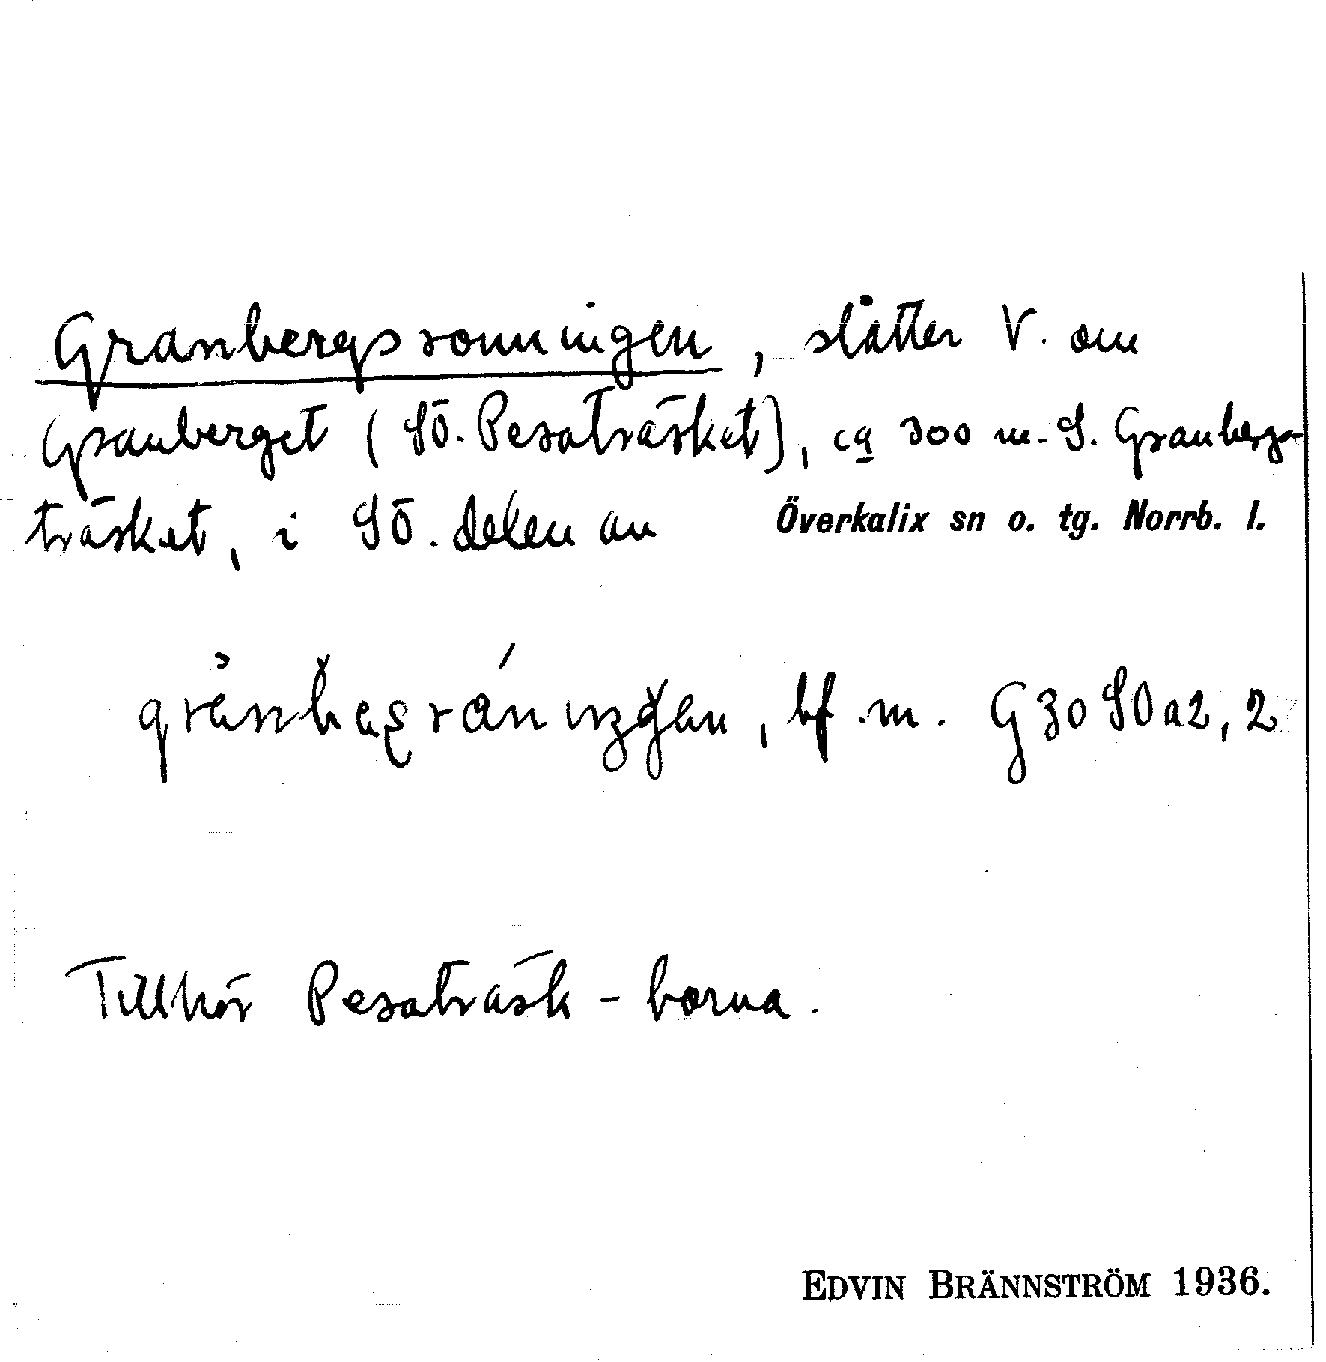 Granbergsronningen, slåtter V. om
Granberget (SÖ. Pesaträsket), ca 300 m. S. Granbergs-
träsket, i SÖ. delen av Överkalix sn o. tg. Norrb. l.
bf. m. G30SOa2,2
Tillhör Pesaträsk-borna.
EDVIN BRÄNNSTRÖM 1936.